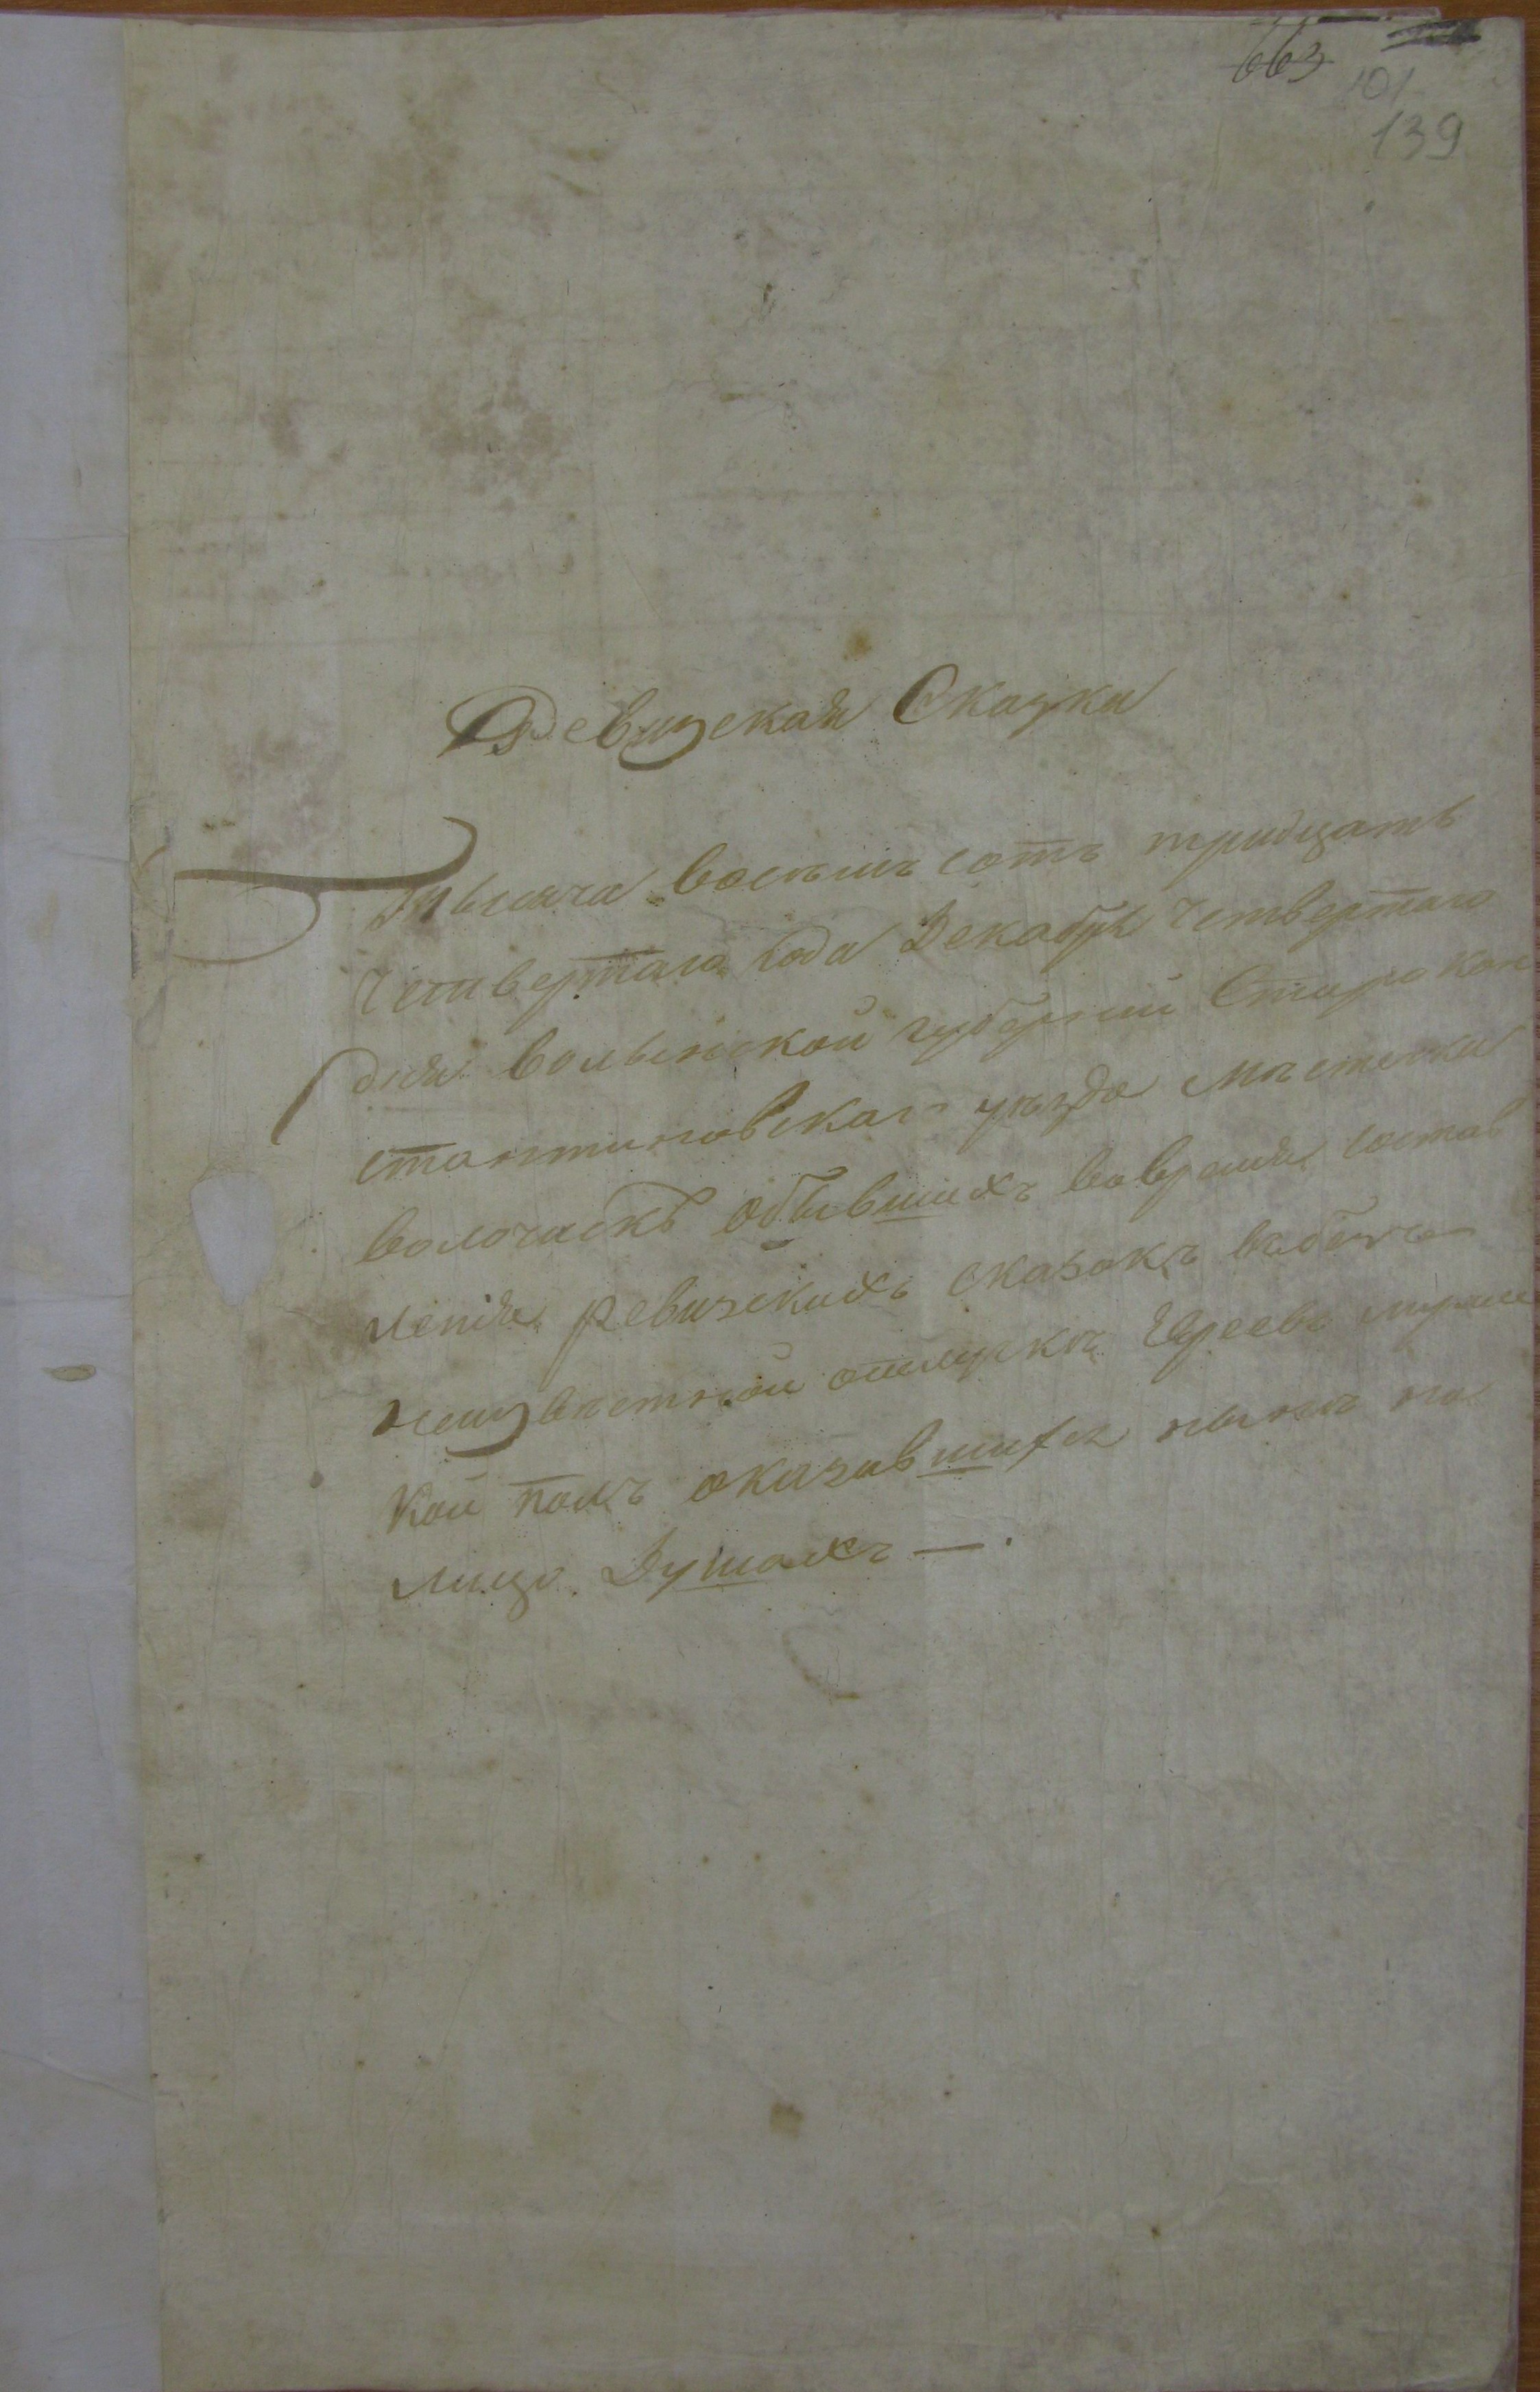 663
101
139
Ревизская Сказка
Тысяча восемь сотъ тридцать
четвертаго года Декабря четвертаго
дня волынской губерніи Старокон
стантиновскаго уѣзда мѣстечка
волочискъ обывшихъ вовремя состав
ленія ревизскихъ сказокъ въбезъ
неизвѣстной отлучкѣ Евреевъ мужес
кой полъ оказавшихся нынѣ на
лицо Душахъ —.